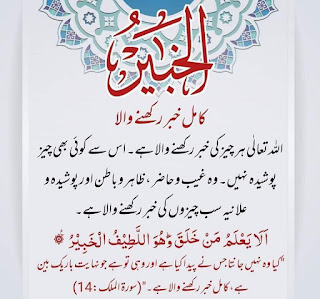 الخبیر
کامل خبر رکھنے والا
اللہ تعالیٰ ہر چیز کی خبر رکھنے والا ہے۔ اس سے کوئی بھی چیز
پوشیدہ نہیں۔ وہ غیب و حاضر، ظاہر و باطن اور پوشیدہ و
علانیہ سب چیزوں کی خبر رکھنے والا ہے۔
اَلَا یَعْلَمُ مَنْ خَلَقَ وَھُوَ اللَّطِیْفُ الْخَبِیْرُ
"کیا وہ نہیں جانتا جس نے پیدا کیا ہے اور وہی تو ہے جو نہایت باریک بین
ہے، کامل خبر رکھنے والا ہے۔" (سورۃ الملک: 14)